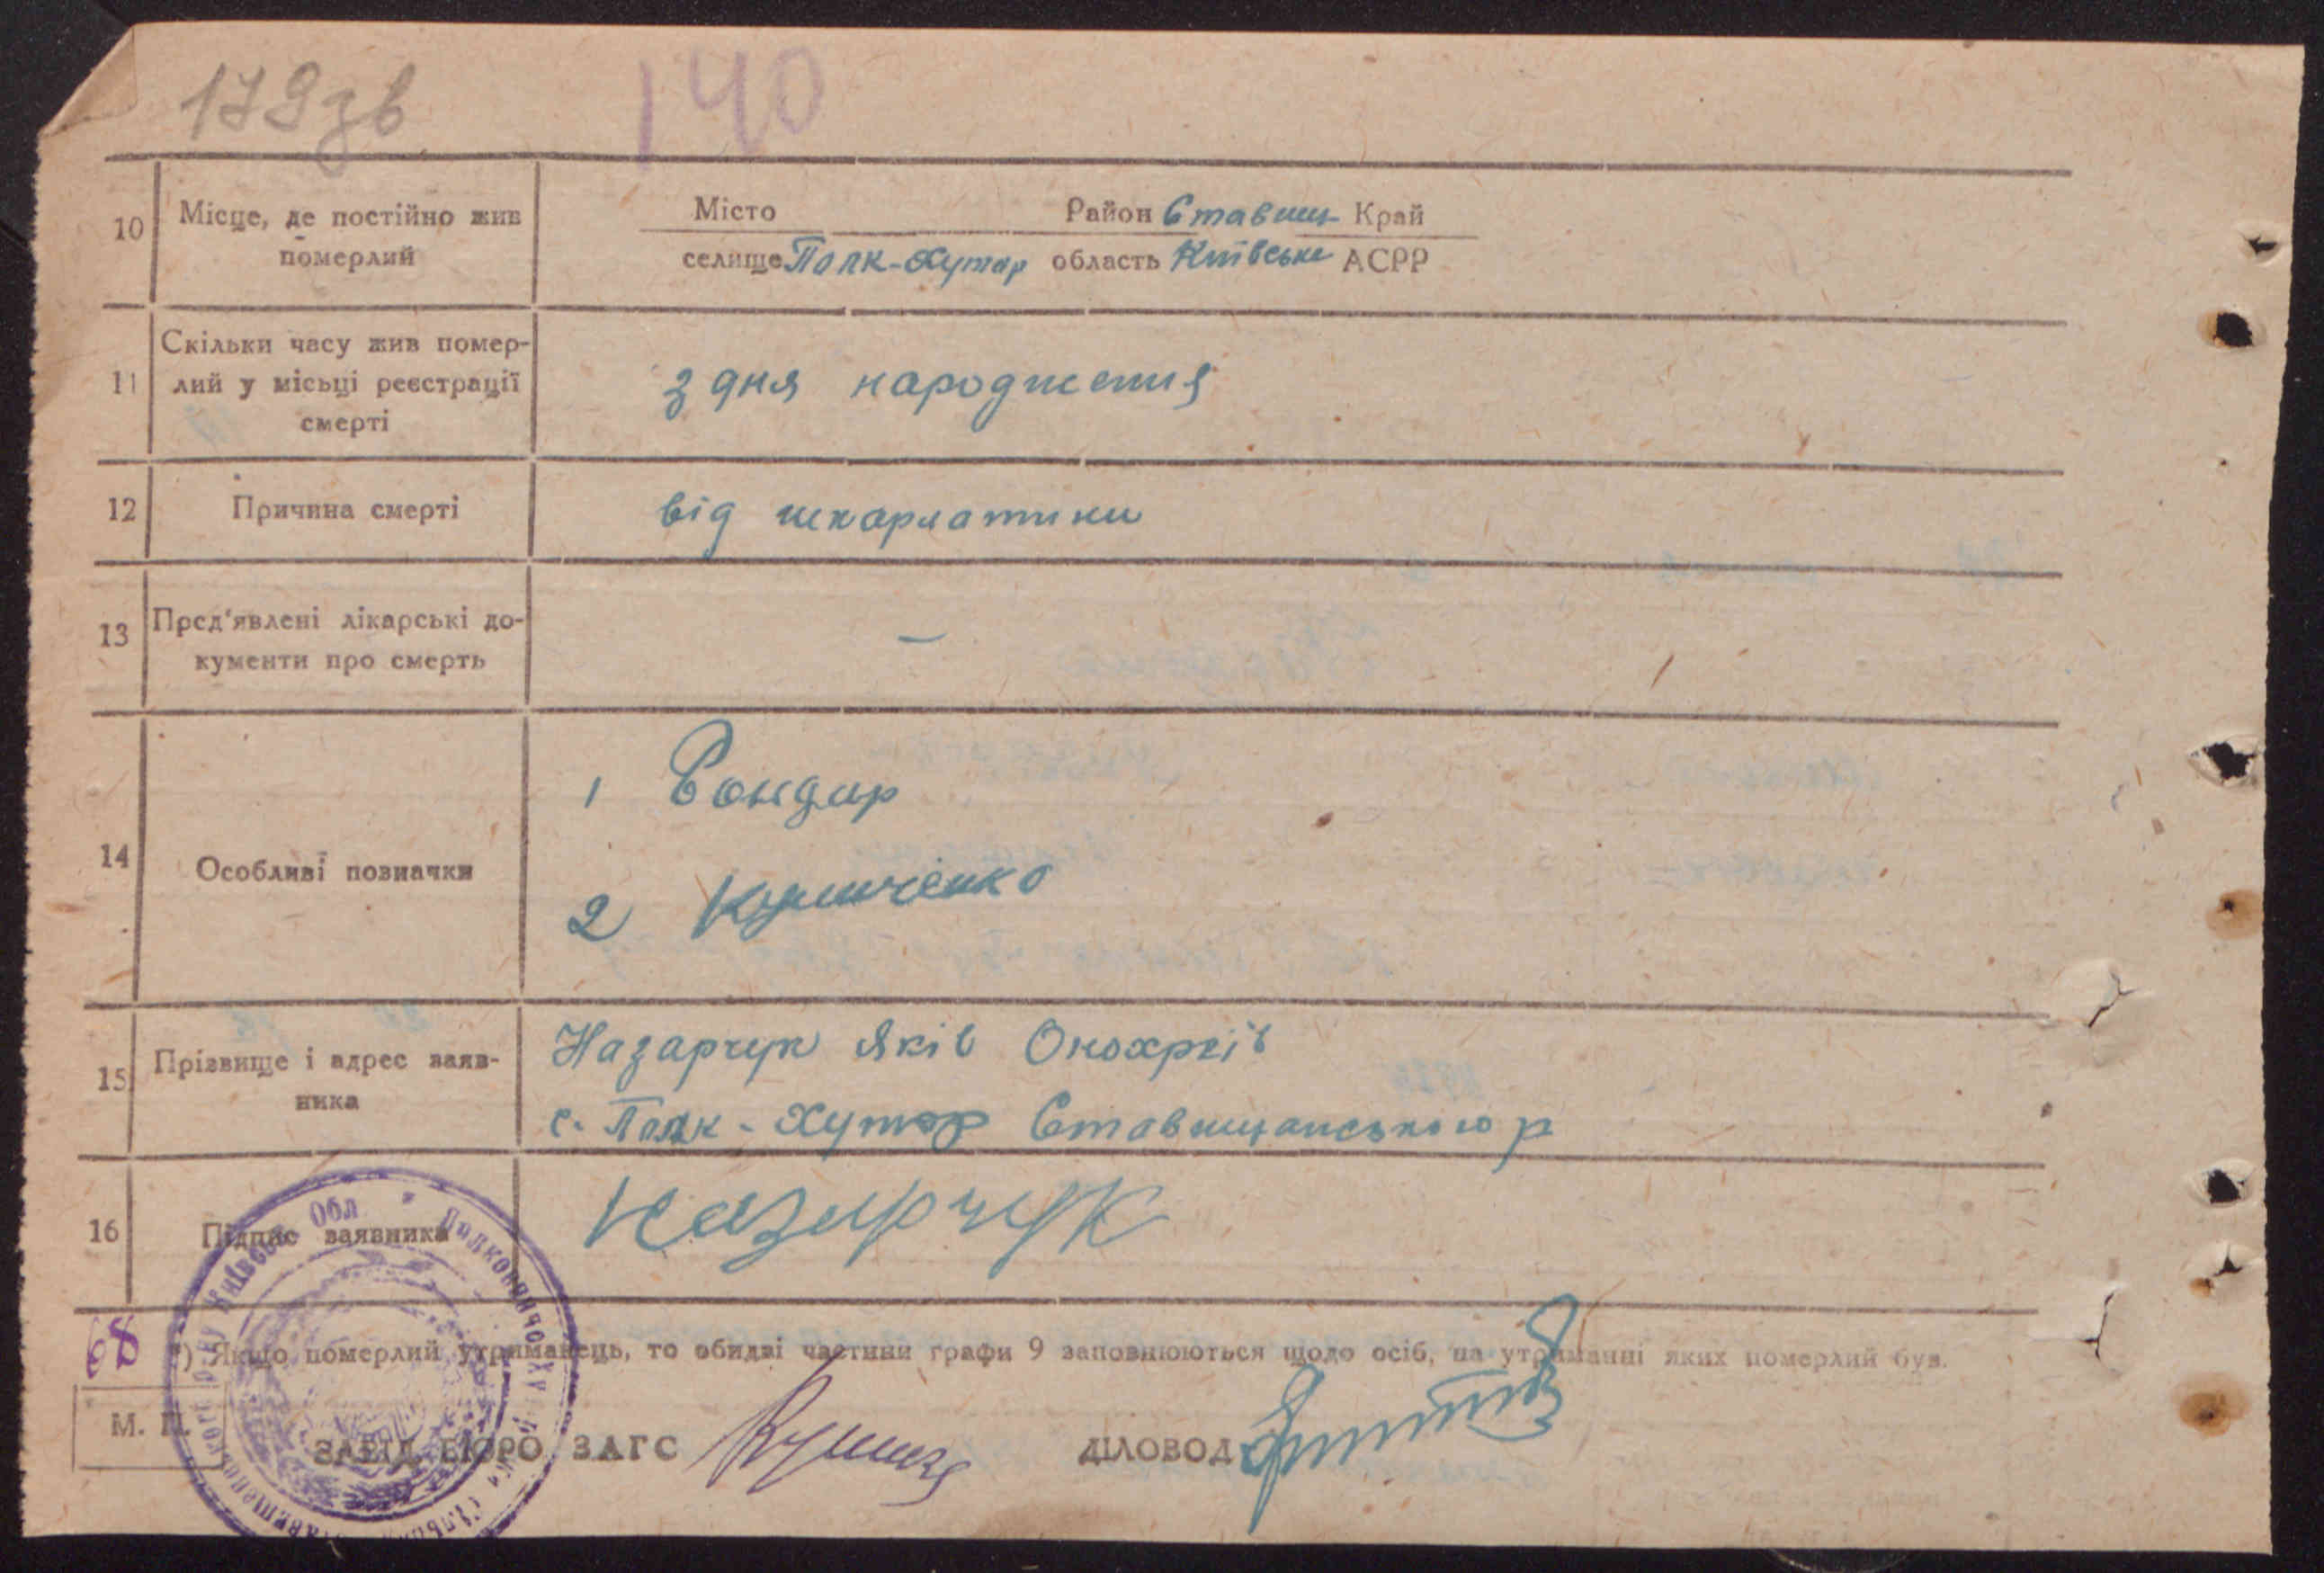 179зв 140
10 Місце, де постійно жив померлий
Місто Район Ставищ Край
селище Полк-Хутор область Київське АСРР
11 Скільки часу жив помер-
лий у місьці реєстрації
смерті
з дня народження
12 Причина смерті від шкарлатини
13 Пред'явлені лікарські до-
кументи про смерть
—
14 Особливі позначки
1 Бондар
2
15 Прізвище і адрес заяв-
ника
Назарчук Яків
с. Полк-Хутор Ставищанського р
16 Підпис заявника Назарчук
68 *) Якщо померлий утриманець, то обидві частини графи 9 заповнюються щодо осіб, на утриманні яких померлий був.
М. П.
ЗАВІД. БЮРО ЗАГС ДІЛОВОД
Київської Обл